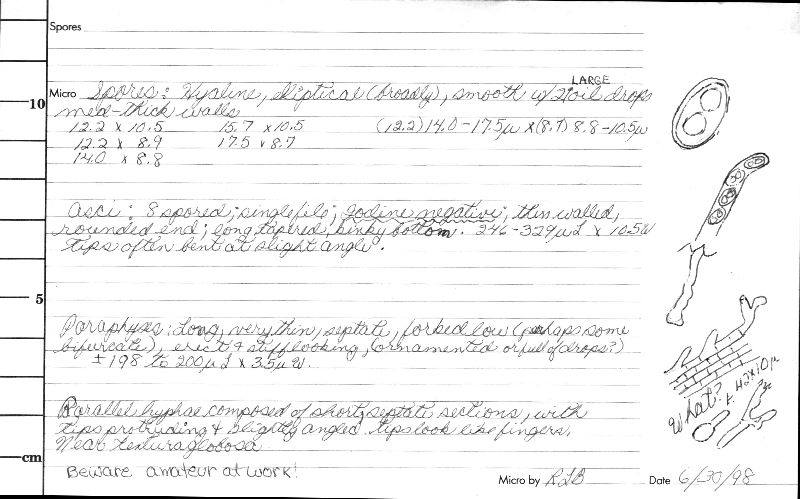 Spores
LARGE
Micro Spores: Hyaline, elliptical (broadly), smooth w/ 2 oil drops
med-thick walls
12.2 x 10.5 15.7 x 10.5 (12.2) 14.0 - 17.5µ x (8.7) 8.8 - 10.5µ
12.2 x 8.9 17.5 x 8.7
14.0 x 8.8
10
Asci: 8 spored; single file; Iodine negative; thin walled,
rounded end; long tapered, kinky bottom. 246-329µ L x 10.5W
tips often bent at slight angle.
5
Paraphyses: Long, very thin, septate, forked low (perhaps some
bifurcate), erect & stiff looking, (ornamented or full of drops?)
± 198 to 200µ L x 3.5µ W.
What?
Parallel hyphae composed of short, septate sections, with
tips protruding & slightly angled tips look like fingers.
Near textura globosa
cm
Beware amateur at work!
Micro by RLB Date 6/30/98